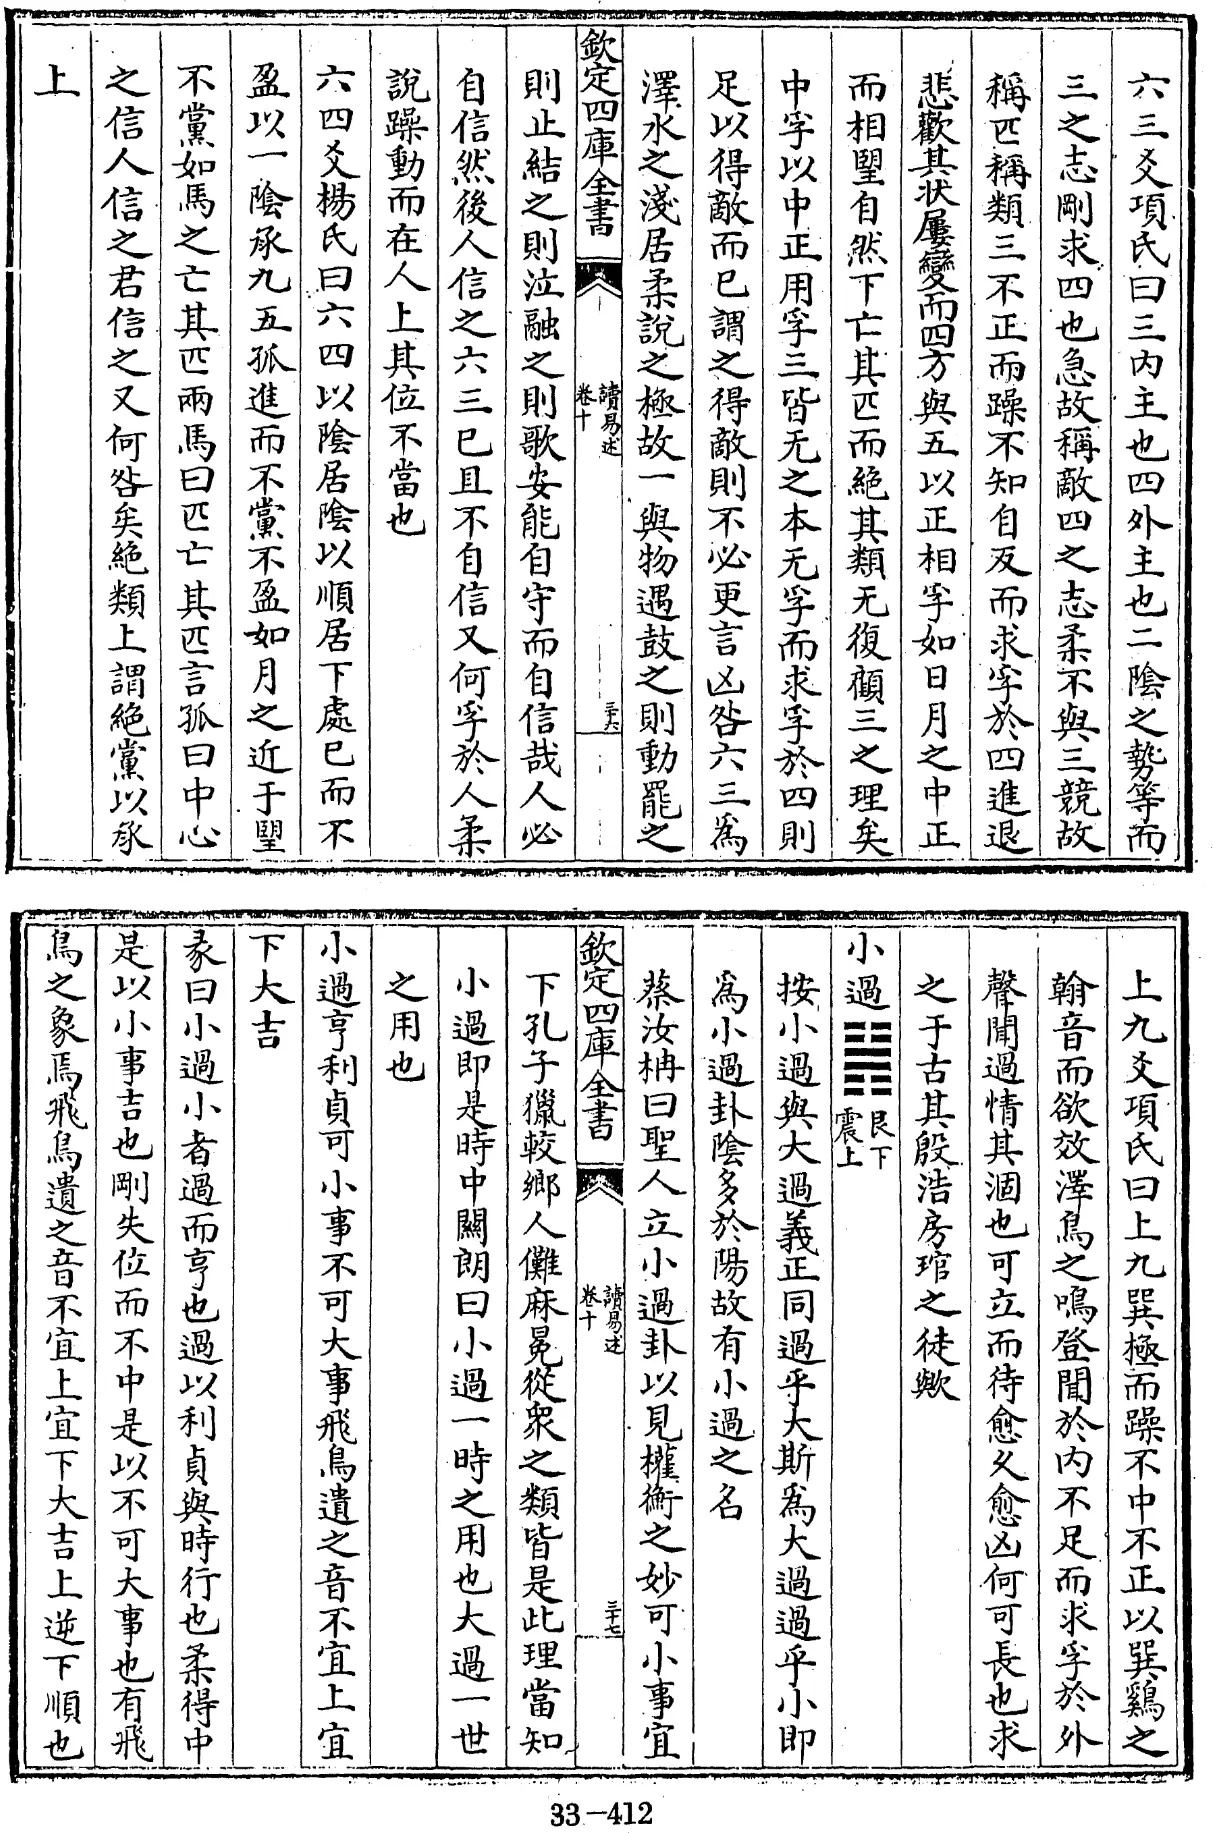 六三爻項氏曰三内主也四外主也二陰之勢等而
三之志剛求四也急故稱敵四之志柔不與三競故
稱匹稱類三不正而躁不知自反而求孚於四進退
悲歡其状屢變而四方與五以正相孚如日月之中正
而相朢自然下亡其匹而絶其類无復顧三之理矣
中孚以中正用孚三皆无之本无孚而求孚於四則
足以得敵而已謂之得敵則不必更言凶咎六三為
澤水之淺居柔說之極故一與物遇鼓之則動罷之
欽定四庫全書
讀易述
卷十
三十六
則止結之則泣融之則歌安能自守而自信哉人必
自信然後人信之六三已且不自信又何孚於人柔
說躁動而在人上其位不當也
六四爻楊氏曰六四以隂居隂以順居下處已而不
盈以一隂承九五孤進而不黨不盈如月之近于朢
不黨如馬之亡其匹兩馬曰匹亡其匹言孤曰中心
之信人信之君信之又何咎矣絶類上謂絶黨以承
上
上九爻項氏曰上九巽極而躁不中不正以巽鷄之
翰音而欲效澤鳥之鳴登聞於内不足而求孚於外
聲聞過情其涸也可立而待愈久愈凶何可長也求
之于古其殷浩房琯之徒歟
小過䷽艮下
震上
按小過與大過義正同過乎大斯為大過過乎小即
為小過卦陰多於陽故有小過之名
蔡汝柟曰聖人立小過卦以見權衡之妙可小事宜
欽定四庫全書
讀易述
卷十
三十七
下孔子獵較鄉人儺麻冕從衆之類皆是此理當知
小過即是時中關朗曰小過一時之用也大過一世
之用也
小過亨利貞可小事不可大事飛鳥遺之音不宜上宜
下大吉
彖曰小過小者過而亨也過以利貞與時行也柔得中
是以小事吉也剛失位而不中是以不可大事也有飛
鳥之象焉飛鳥遺之音不宜上宜下大吉上逆下順也
33-412